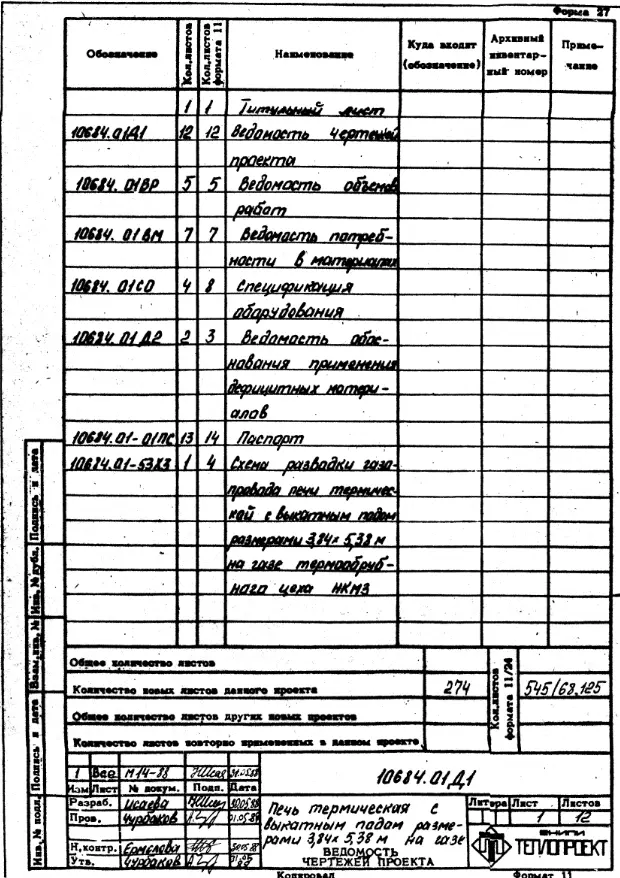 Форма 27
Обозначение
Кол.листов
Кол.листов формата 11
Наименование
Куда входит (обозначение)
Архивный инвентарный номер
Примечание
1 1 Титульный лист
10684.01Д1 12 12 Ведомость чертежей
проекта
10684.01ВР 5 5 Ведомость объемов
работ
10684.01ВМ 7 7 Ведомость потреб-
ности в материалах
10684.01СО 4 8 Спецификация
оборудования
10684.01Д2 2 3 Ведомость обос-
нования применения
дефицитных матери-
алов
10684.01-01ПС 13 14 Паспорт
10684.01-53X3 1 4 Схема разводки газо-
провода печи термичес-
кой с выкатным подом
размерами 3,84х5,38 м
на газе термообруб-
ного цеха НКМЗ
Общее количество листов
Количество новых листов данного проекта 274
Кол.листов формата 11/24
545/68,125
Общее количество листов других новых проектов
Количество листов повторно примененных в данном проекте
1 Все М14-88 31.05.88
Изм Лист № докум. Подп. Дата
10684.01Д1
Разраб. Исаева 30.05.88
Пров. Чурбаков
Н.контр. Ермолова
Утв. Чурбаков
Печь термическая с
выкатным подом разме-
рами 3,84х5,38 м на газе
ВЕДОМОСТЬ
ЧЕРТЕЖЕЙ ПРОЕКТА
Литера Лист Листов
1 12
ТЕПЛОПРОЕКТ
Инв.№ подл. Подпись и дата Взам.инв.№ Инв.№ дубл. Подпись и дата
Копировал Формат 11